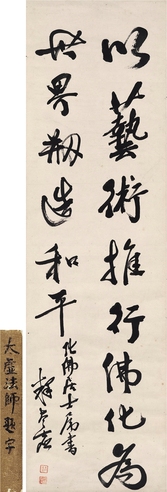 以藝術推行佛化為
世界剏造和平
化佛居士屬書
釋太虛
太虛法師題字